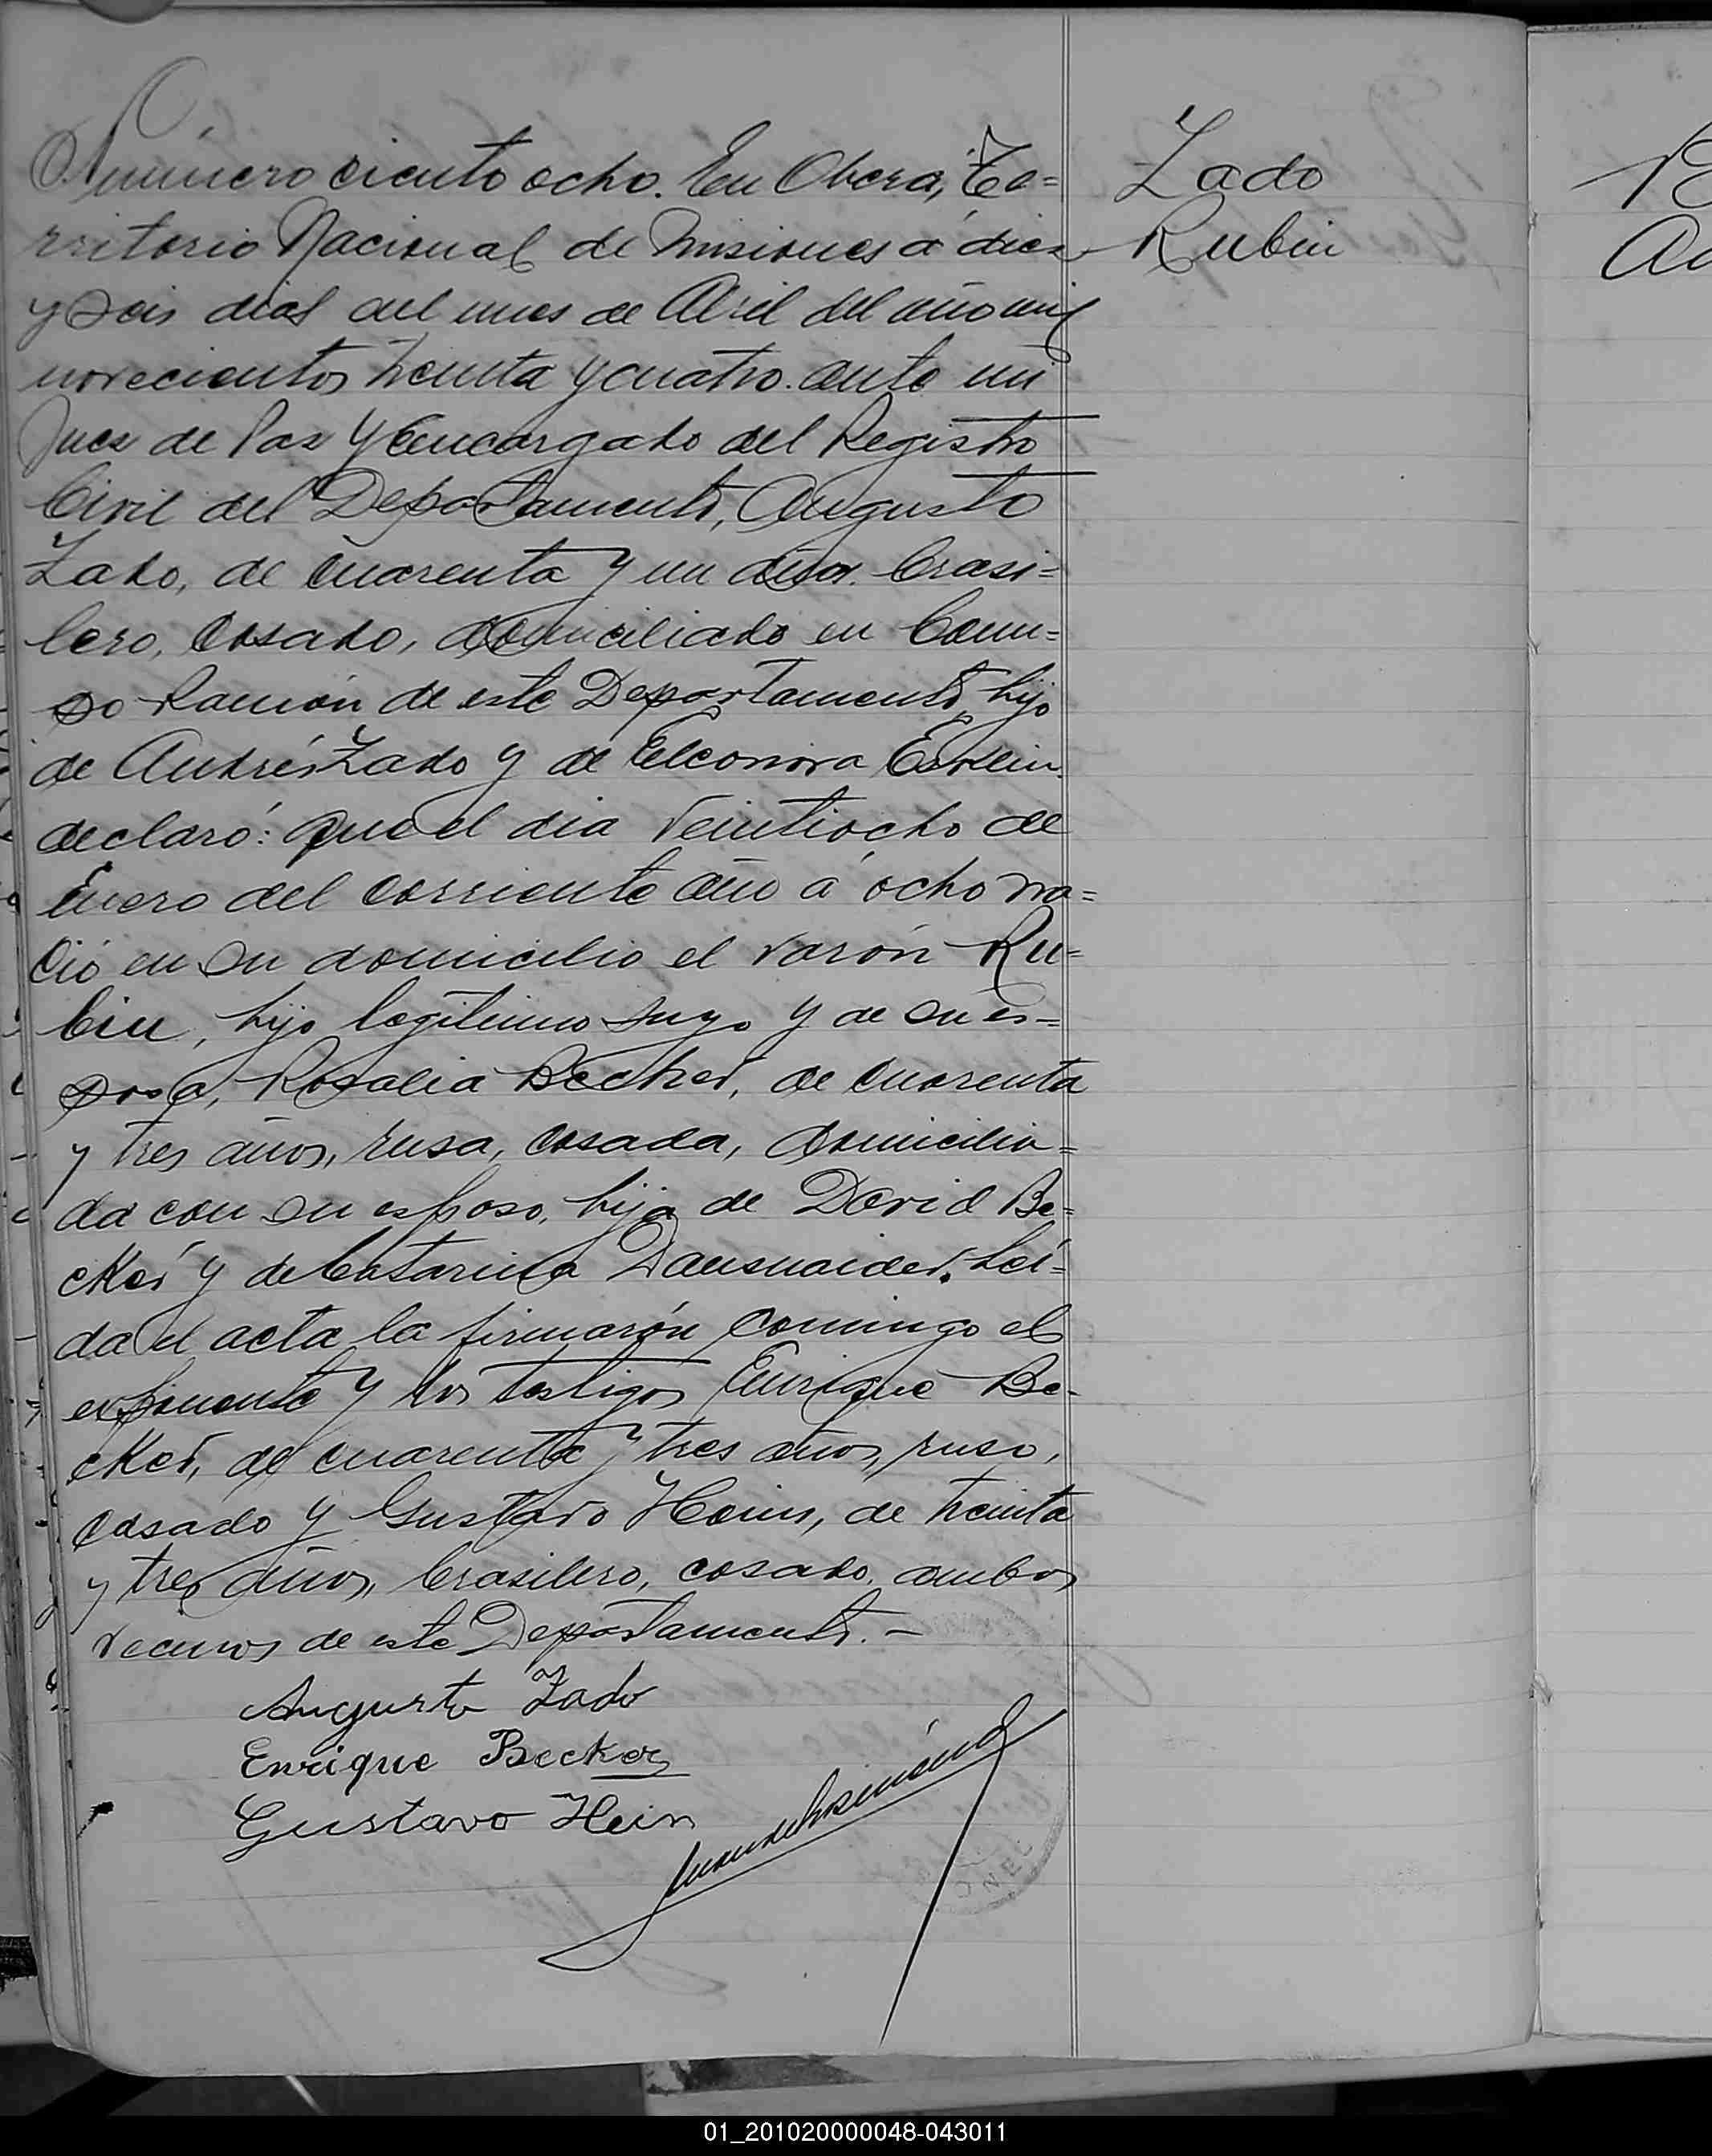 Número ciento ocho. En Oberá, Te=
rritorio Nacional de Misiones a diez
y seis dias del mes de Abril del año mil
novecientos treinta y cuatro. ante mi
Juez de Paz y Encargado del Registro
Civil del Departamento, Augusto
Zado, de cuarenta y un años. brasi=
lero, casado, domiciliado en Cam=
po Ramón de este Departamento, hijo
de Andrés Zado y de Eleonora
declaró: que el dia veintiocho de
Enero del corriente año a ocho na=
ció en su domicilio el varón Ru=
bin, hijo legitimo suyo y de su es=
posa, Rosalia Becker, de cuarenta
y tres años, rusa, casada, domicilia=
da con su esposo, hija de David Be=
cker y de Catarina Dausnaider. Leí=
da el acta la firmarón conmigo el
exponente y los testigos Enrique Be-
cker, de cuarenta y tres años, ruso,
casado y Gustavo Hein, de treinta
y tres años, brasilero, casado, ambos
vecinos de este Departamento. —
Augusto Zado
Enrique Becker
Gustavo Hein
Zado
Rubin
01_201020000048-043011